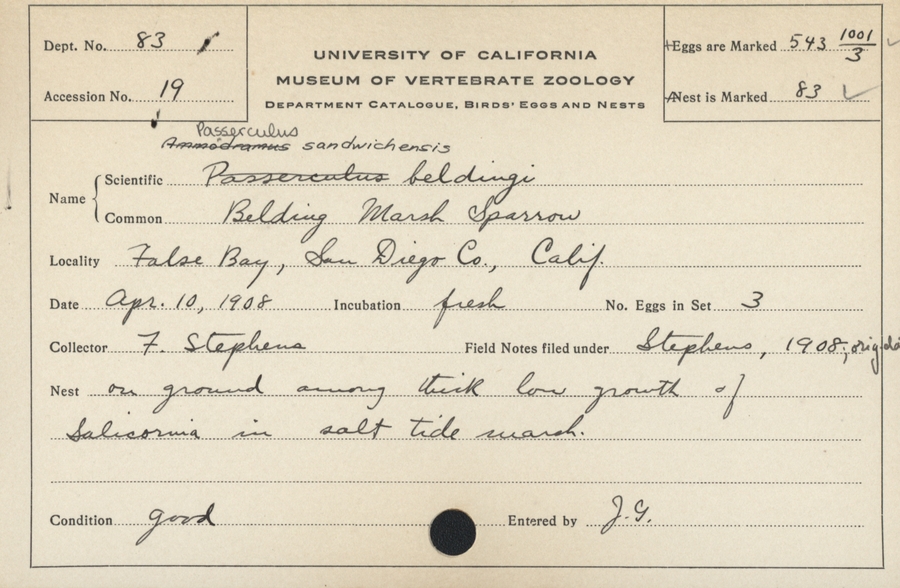 Dept. No. 83
Accession No. 19
UNIVERSITY OF CALIFORNIA
MUSEUM OF VERTEBRATE ZOOLOGY
DEPARTMENT CATALOGUE, BIRDS' EGGS AND NESTS
Eggs are Marked 543 1001/3
Nest is Marked 83
Passerculus
Ammodramus sandwichensis
Name
Scientific Passerculus beldingi
Common Belding Marsh Sparrow
Locality False Bay, San Diego Co., Calif.
Date Apr. 10, 1908 Incubation fresh No. Eggs in Set 3
Collector F. Stephens Field Notes filed under Stephens, 1908; orig.
Nest on ground among thick low growth of
Salicornia in salt tide marsh.
Condition good Entered by J.G.